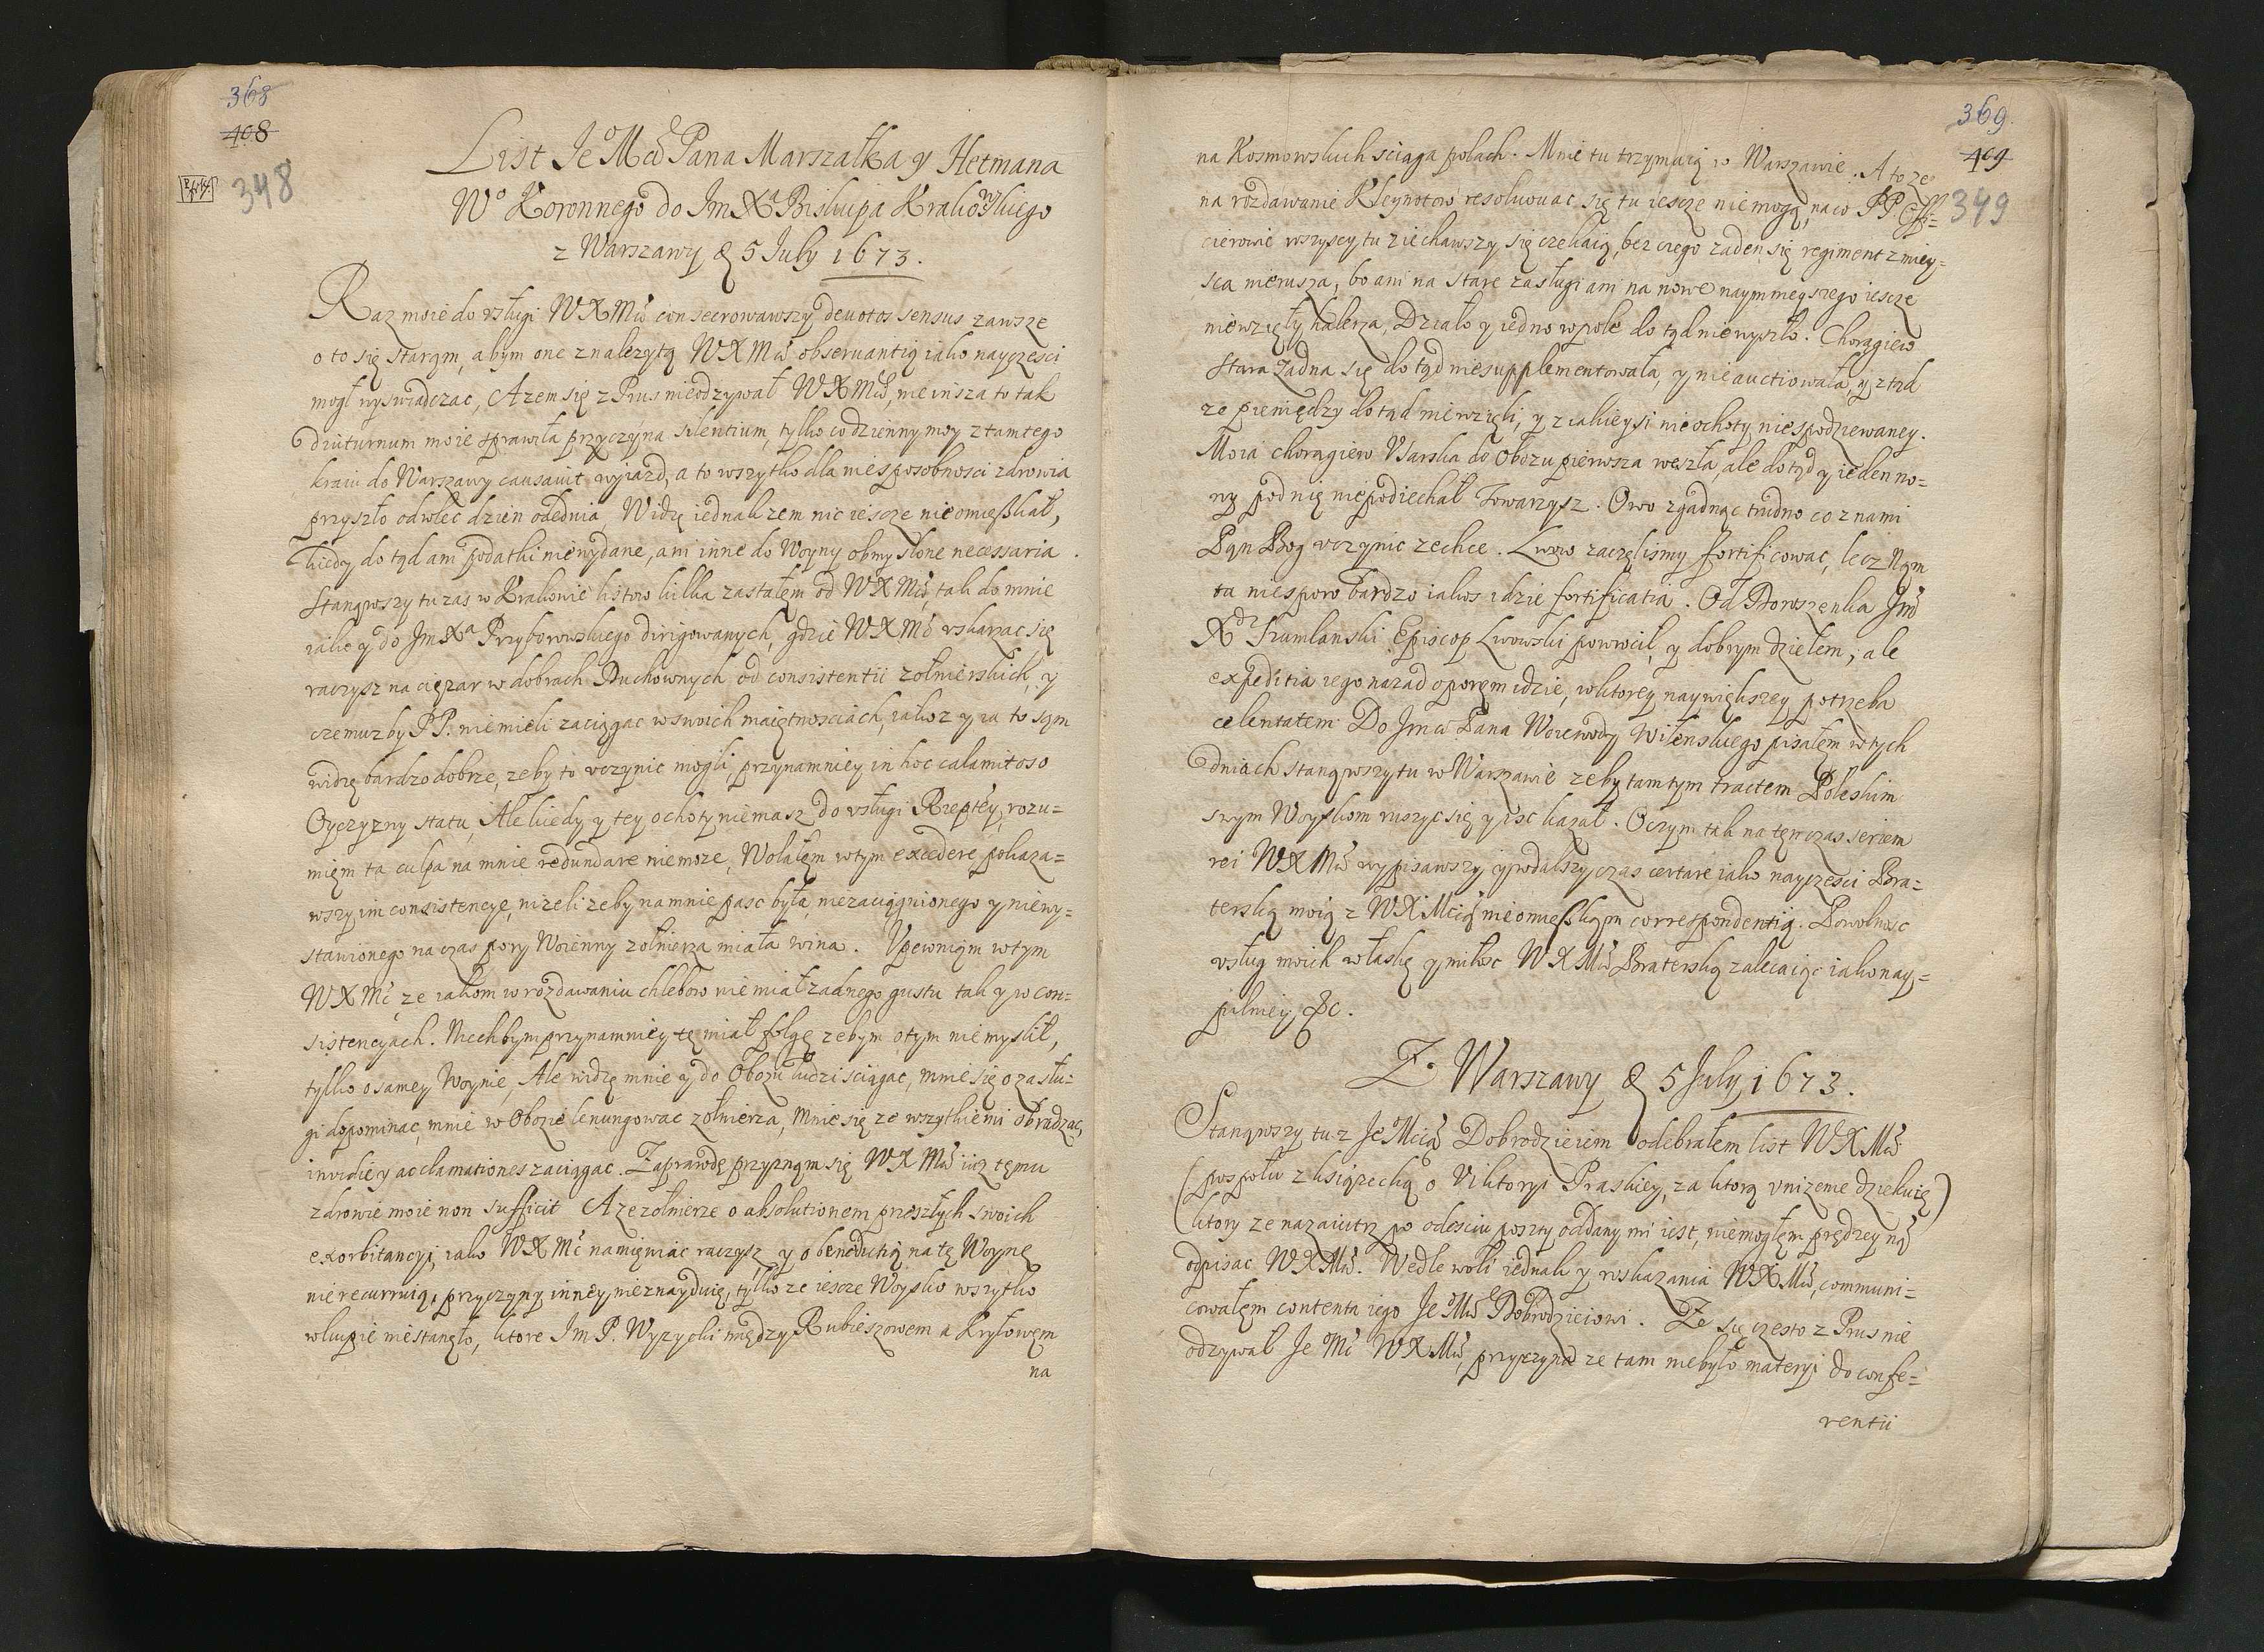 368
408
348
List Je° Mći Pana Marszałka y Hetmana
W° Koronnego do Jm Xa Biskupa Krakowskiego
z Warszawy d 5 July 1673.
Raz moie do usługi WXMći consecrowawszy devotos sensus zawsze
o to się staram, abym one z należytą WXMći observantią iako nayczęsci
mogł wyswiadczac, A zem się z Prus nieodzywał WXMći, nieinsza to tak
diuturnum moie sprawiła przyczyna silentium, tylko codzienny moy z tamtego
kraiu do Warszawy causavit wyjazd, a to wszytko dla niesposobnosci zdrowia
przyszło odwlec dzien odednia, Widzę iednak zem nic iescze nieomieszkał,
kiedy do tąd ani podatki niewydane, ani inne do Woyny obmyslone necessaria.
Stanąwszy tu zas w Krakowie listow kilka zastałem od WXMći, tak do mnie
iako y do Jm Xa Przyborowskiego dirigowanych, gdzie WXMć uskarzac się
raczysz na ciężar w dobrach Duchownych od consistentii zołnierskich, y
czemuzby PP. niemieli zaciągac w swoich maiętnosciach, iakoz y ia to sam
widzę bardzo dobrze, zeby to uczynic mogli przynamniey in hoc calamitoso
Oyczyzny statu, Ale kiedy y tey ochoty niemasz do usługi Rzeptey, rozu=
miem ta culpa na mnie redundare niemoze, Wolałem w tym excedere pokaza=
wszy im consistencye, nizeli zeby na mnie pasc była, niezaciągnionego y niewy=
stawionego na czas pory Woienny zołnierza miała wina. Upewniam w tym
WXMć ze iakom w rozdawaniu chlebow nie miał zadnego gustu tak y w con=
sistencyach. Niechbym przynamniey tę miał folgę zebym o tym niemyslił,
tylko o samey Woynie, Ale widzę mnie y do Obozu ludzi sciągac, mnie się o zasłu=
gi dopominac, mnie w Obozie lenungowac zołnierza, Mnie się ze wszytkiemi obradzac,
invidie y acclamationes zaciągac. Zaprawdę przyznam się WXMći iuz temu
zdrowie moie non sufficit A ze zołnierze o absolutionem przeszłych swoich
exorbitancyi, iako WXMć namieniac raczysz y o benedictią na tę Woynę
nie recurruią, przyczyny inney nieznayduię, tylko ze iescze Woysko wszytko
w kupie niestanęło, ktore Jm P. Wyzycki między Rubieszowem a Kryłowem
na
369
409
349
na Kosmowskich sciąga polach. Mnie tu trzymaią w Warszawie. A to ze
na rozdawanie Kleynotow resolwowac się tu iescze niemogą, na co PP. Offi=
cierowie wszyscy tu ziechawszy się czekaią, bez czego zaden się regiment z miey=
sca nierusza, bo ani na stare zasługi ani na nowe naymnieyszego iescze
niewzięły halerza, Działo y iedno w pole do tąd niewyszło. Chorągiew
stara zadna się do tąd niesupplementowała, y nieauctiowała, y ztąd
ze pieniędzy dotąd niewzięli, y z iakieysi nieochoty niespodziewaney.
Moia chorągiew Usarska do Obozu pierwsza weszła, ale dotąd y ieden no=
wy pod nię niepodiechał Towarzysz. Owo zgadnąc trudno co z nami
Pan Bog uczynic zechce. Lwow zaczęlismy fortificowac, lecz Nam
ta niesporo bardzo iakos idzie fortificatia. Od Doroszenka Jm
Xdz Szumlanski Episcop Lwowski powrocił, y dobrym dziełem, ale
expeditia iego nazad oporem idzie, w ktorey naywiększey potrzeba
celeritatem. Do Jm ći Pana Woiewody Wilenskiego pisałem w tych
dniach stanąwszy tu w Warszawie zeby tamtym tractem Poleskim
swym Woyskom ruszyc się y isc kazał. O czym tak na ten czas seriem
rei WXMći wypisawszy, y w dalszy czas certare iako nayczęsci Bra=
terską moią z WXMcią nieomieszkam correspondentią. Powolnosc
usług moich w łaskę y miłosc WXMći Braterską zalecaiąc iako nay=
pilniey, &c.
Z Warszawy d 5 July, 1673.
Stanąwszy tu z Je° Mcią Dobrodzieiem odebrałem list WXMći
(pospołu z książeczką o Viktoryi Praskiey, za ktorą unizenie dziekuię)
ktory ze nazaiutrz po odesciu poszty oddany mi iest, niemogłem prędzey nań
odpisac WXMći. Wedle woli iednak y wskazania WXMći, communi=
cowałem contenta iego Je° Mći Dobrodzieiowi. Ze się często z Prus nie
odzywał Je° Mć WXMći, przyczyna ze tam niebyło materyi do confe=
rentii